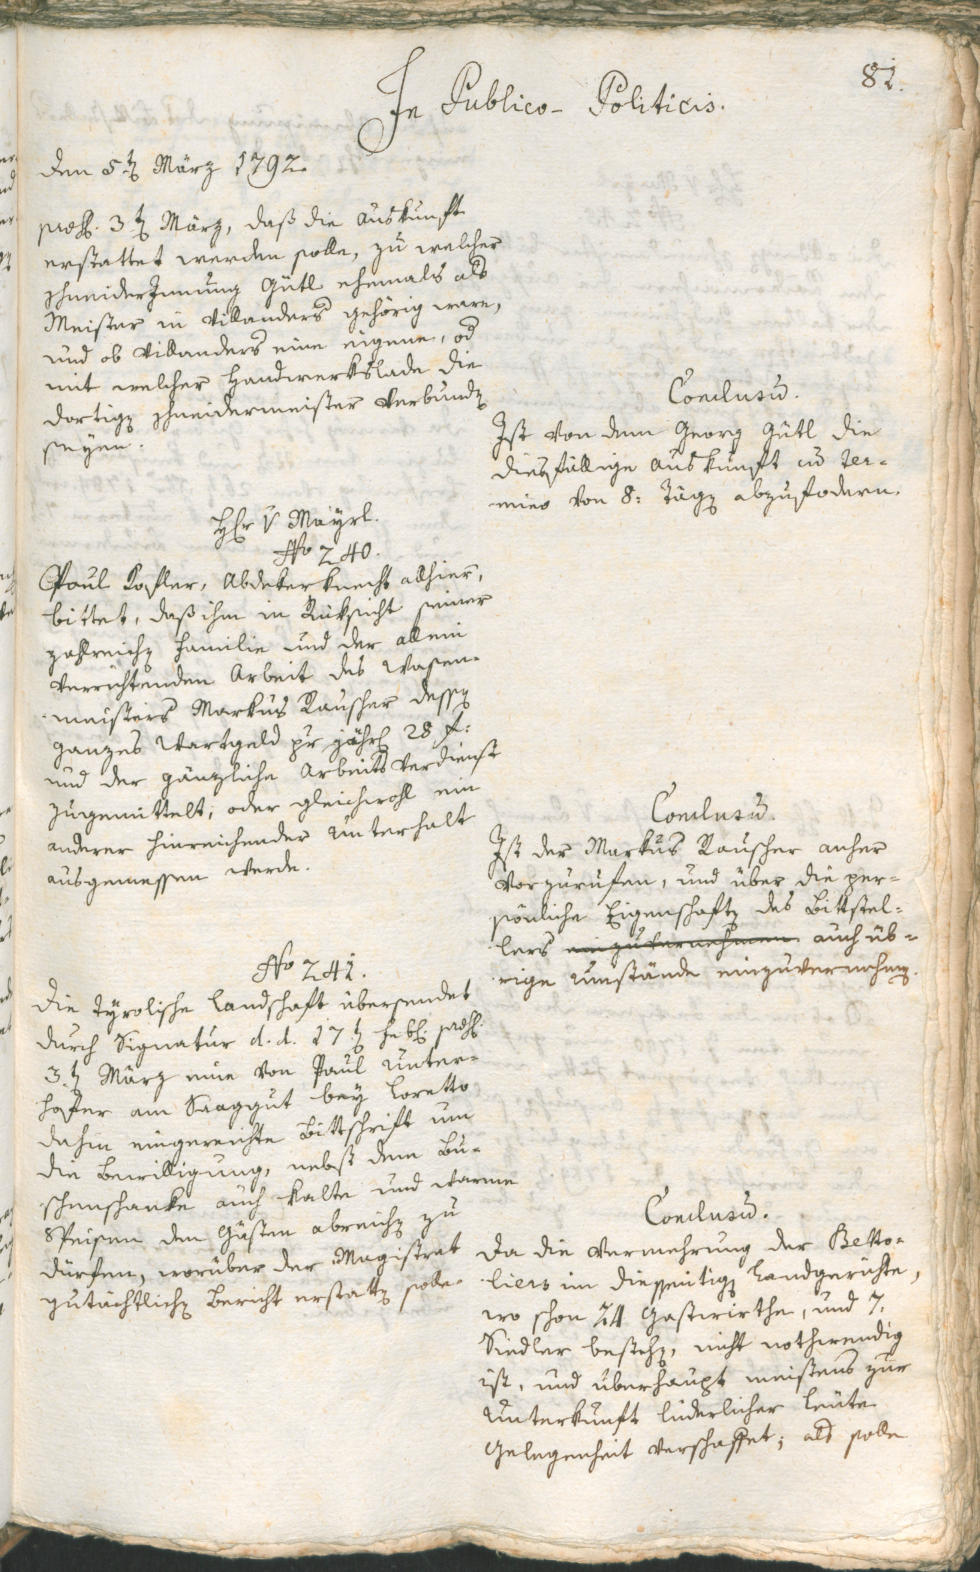 81.
In Publico-Politicis.
den 5t März 1792.
præs. 3t März, daß die Auskunft
erstattet werden solle, zu welcher
Schneider Innung Gütl ehemals als
Meister in Villanders gehörig ware,
und ob Villanders eine eigene, od
mit welcher Handwerkslade die
dortigen Schneidermeister verbunden
seyen.
Conclusū.
Ist von dem Georg Gütl die
diesfällige Auskunft in ter-
mino von 8: Tägen abzufodern.
Hr v Mayrl.
No 240.
Paul Kofler, Abdekerknecht allhier,
bittet, daß ihm in Rüksicht seiner
zahlreichen Familie und der allein
verrichtenden Arbeit des Wasen-
meisters Markus Rauscher dessen
ganzes Wartgeld pr jährl 28 f:
und der gänzliche Arbeitsverdienst
zugemittelt, oder gleichwohl ein
anderer hinreichender Unterhalt
ausgemessen werde.
Conclusū.
Ist der Markus Rauscher anher
vorzurufen, und über die per-
sönliche Eigenschaften des Bittstel-
lers einzuvernehmen auch üb-
rige Umstände einzuvernehmen.
No 241.
Die tyrolische Landschaft übersendet
durch Signatur d. d. 17t Febr. præs.
3t März eine von Paul Unter-
hofer am Saaggut bey Loretto
dahin eingereichte Bittschrift um
die Bewilligung, nebst dem Bu-
schenschanke auch kalte und warme
Speisen den Gästen abreichen zu
dürfen, worüber der Magistrat
gutächtlichen Bericht erstatten solle.
Conclusū.
Da die Vermehrung der Betto-
liers im diesseitigen Landgerichte,
wo schon 24 Gastwirthe, und 7.
Siedler bestehen, nicht nothwendig
ist, und überhaupt meistens zur
Unterkunft liederlicher Leute
Gelegenheit verschaffet; als solle